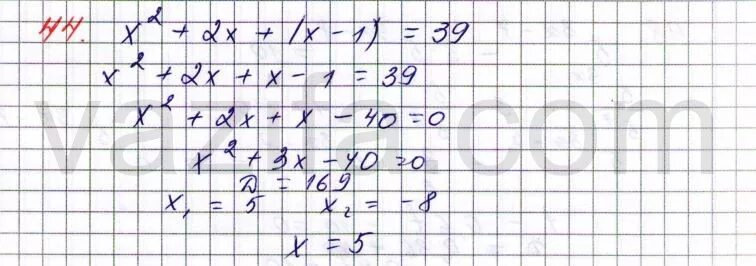 44. x² + 2x + (x - 1) = 39
x² + 2x + x - 1 = 39
x² + 2x + x - 40 = 0
x² + 3x - 40 = 0
D = 169
x₁ = 5 x₂ = -8
x = 5
vazifa.com